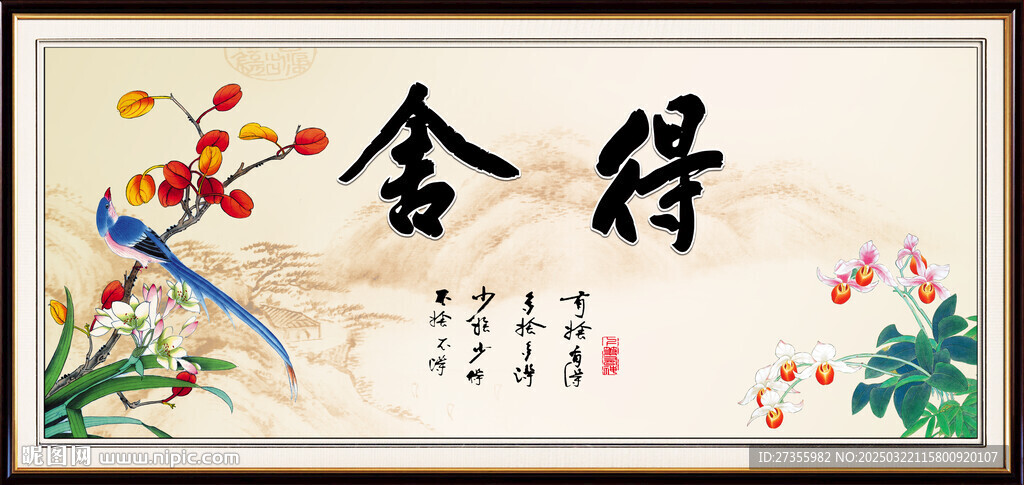 舍得
有捨有得
多捨多得
少捨少得
不捨不得
昵图网 www.nipic.com
ID:27355982 NO:20250322115800920107